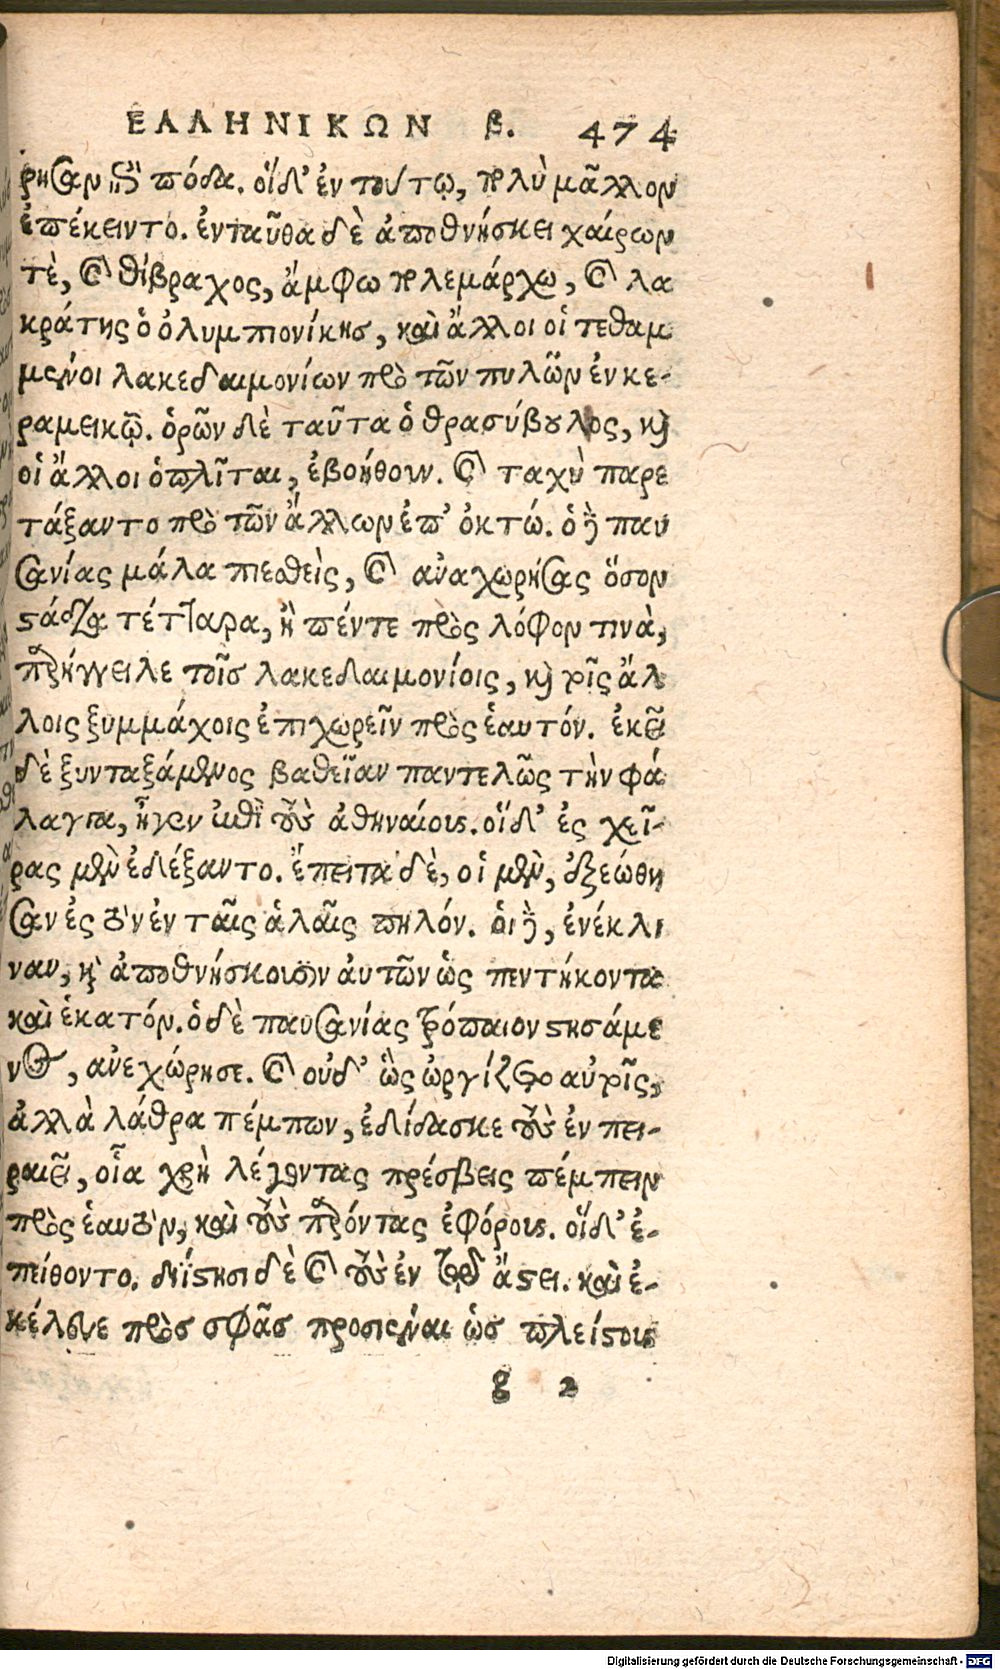 ΕΛΛΗΝΙΚΩΝ β. 474
ρησαν ἐπὶ πόδα. οἵδ' ἐν τούτῳ, πολὺ μᾶλλον
ἐπέκειντο. ἐνταῦθα δὲ ἀποθνήσκει χαίρων
τὲ, καὶ θίβραχος, ἄμφω πολεμάρχω, καὶ λα
κράτης ὁ ὀλυμπιονίκης, καὶ ἄλλοι οἱ τεθαμ
μένοι λακεδαιμονίων πρὸ τῶν πυλῶν ἐν κε-
ραμεικῷ. ὁρῶν δὲ ταῦτα ὁ θρασύβουλος, καὶ
οἱ ἄλλοι ὁπλῖται, ἐβοήθουν. καὶ ταχὺ παρε
τάξαντο πρὸ τῶν ἄλλων ἐπ' ὀκτώ. ὁ δὲ παυ
σανίας μάλα πιεσθεὶς, καὶ ἀναχωρήσας ὅσον
στάδια τέτταρα, ἢ πέντε πρὸς λόφον τινὰ,
παρήγγειλε τοῖς λακεδαιμονίοις, καὶ τοῖς ἄλ
λοις ξυμμάχοις ἐπιχωρεῖν πρὸς ἑαυτόν. ἐκεῖ
δὲ ξυνταξάμενος βαθεῖαν παντελῶς τὴν φά
λαγγα, ἦγεν ἐπὶ τοὺς ἀθηναίους. οἵδ' ἐς χεῖ-
ρας μὲν ἐδέξαντο. ἔπειτα δὲ, οἱ μὲν, ἐξεώθη
σαν ἐς τὸν ἐν ταῖς ἁλαῖς πηλόν. οἱ δὲ, ἐνέκλι
ναν, καὶ ἀποθνήσκουσιν αὐτῶν ὡς πεντήκοντα
καὶ ἑκατόν. ὁ δὲ παυσανίας τρόπαιον στησάμε
νος, ἀνεχώρησε. καὶ οὐδ' ὣς ὠργίζετο αὐτοῖς,
ἀλλὰ λάθρα πέμπων, ἐδίδασκε τοὺς ἐν πει-
ραιεῖ, οἷα χρὴ λέγοντας πρέσβεις πέμπειν
πρὸς ἑαυτὸν, καὶ τοὺς παρόντας ἐφόρους. οἵδ' ἐ-
πείθοντο. διΐστησι δὲ καὶ τοὺς ἐν τῷ ἄστει. καὶ ἐ-
κέλευε πρὸς σφᾶς προσιέναι ὡς πλείστους
g 2
Digitalisierung gefördert durch die Deutsche Forschungsgemeinschaft - DFG